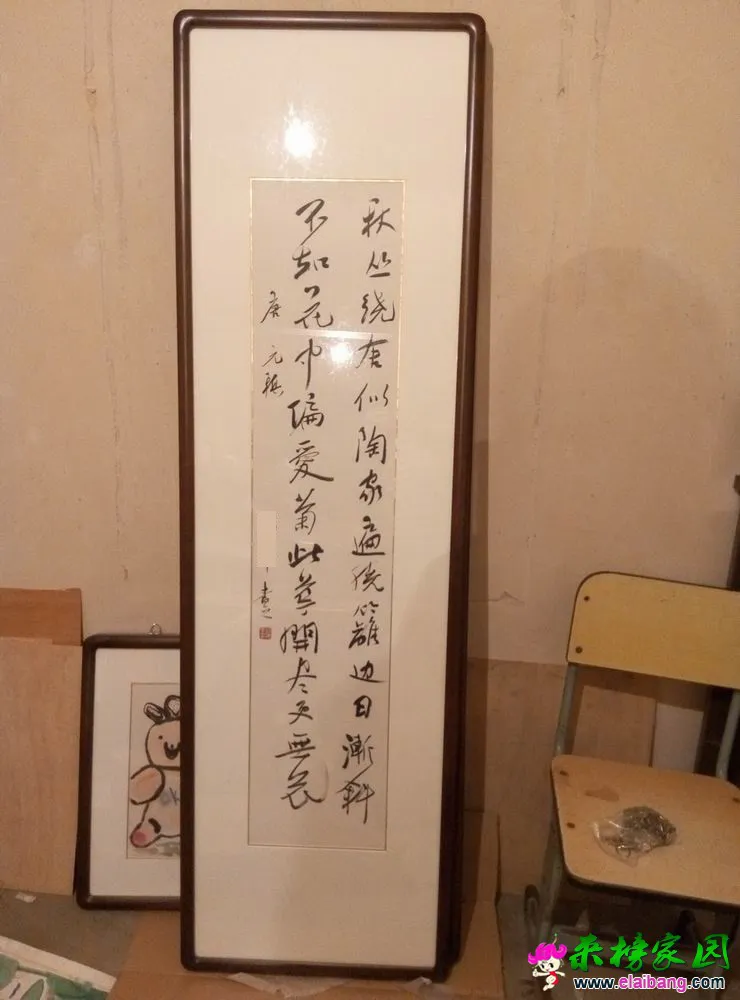 秋丛绕舍似陶家遍绕籬边日渐斜
不知花中偏愛菊此開尽更無花
唐 元稹
来榜家园
www.elaibang.com